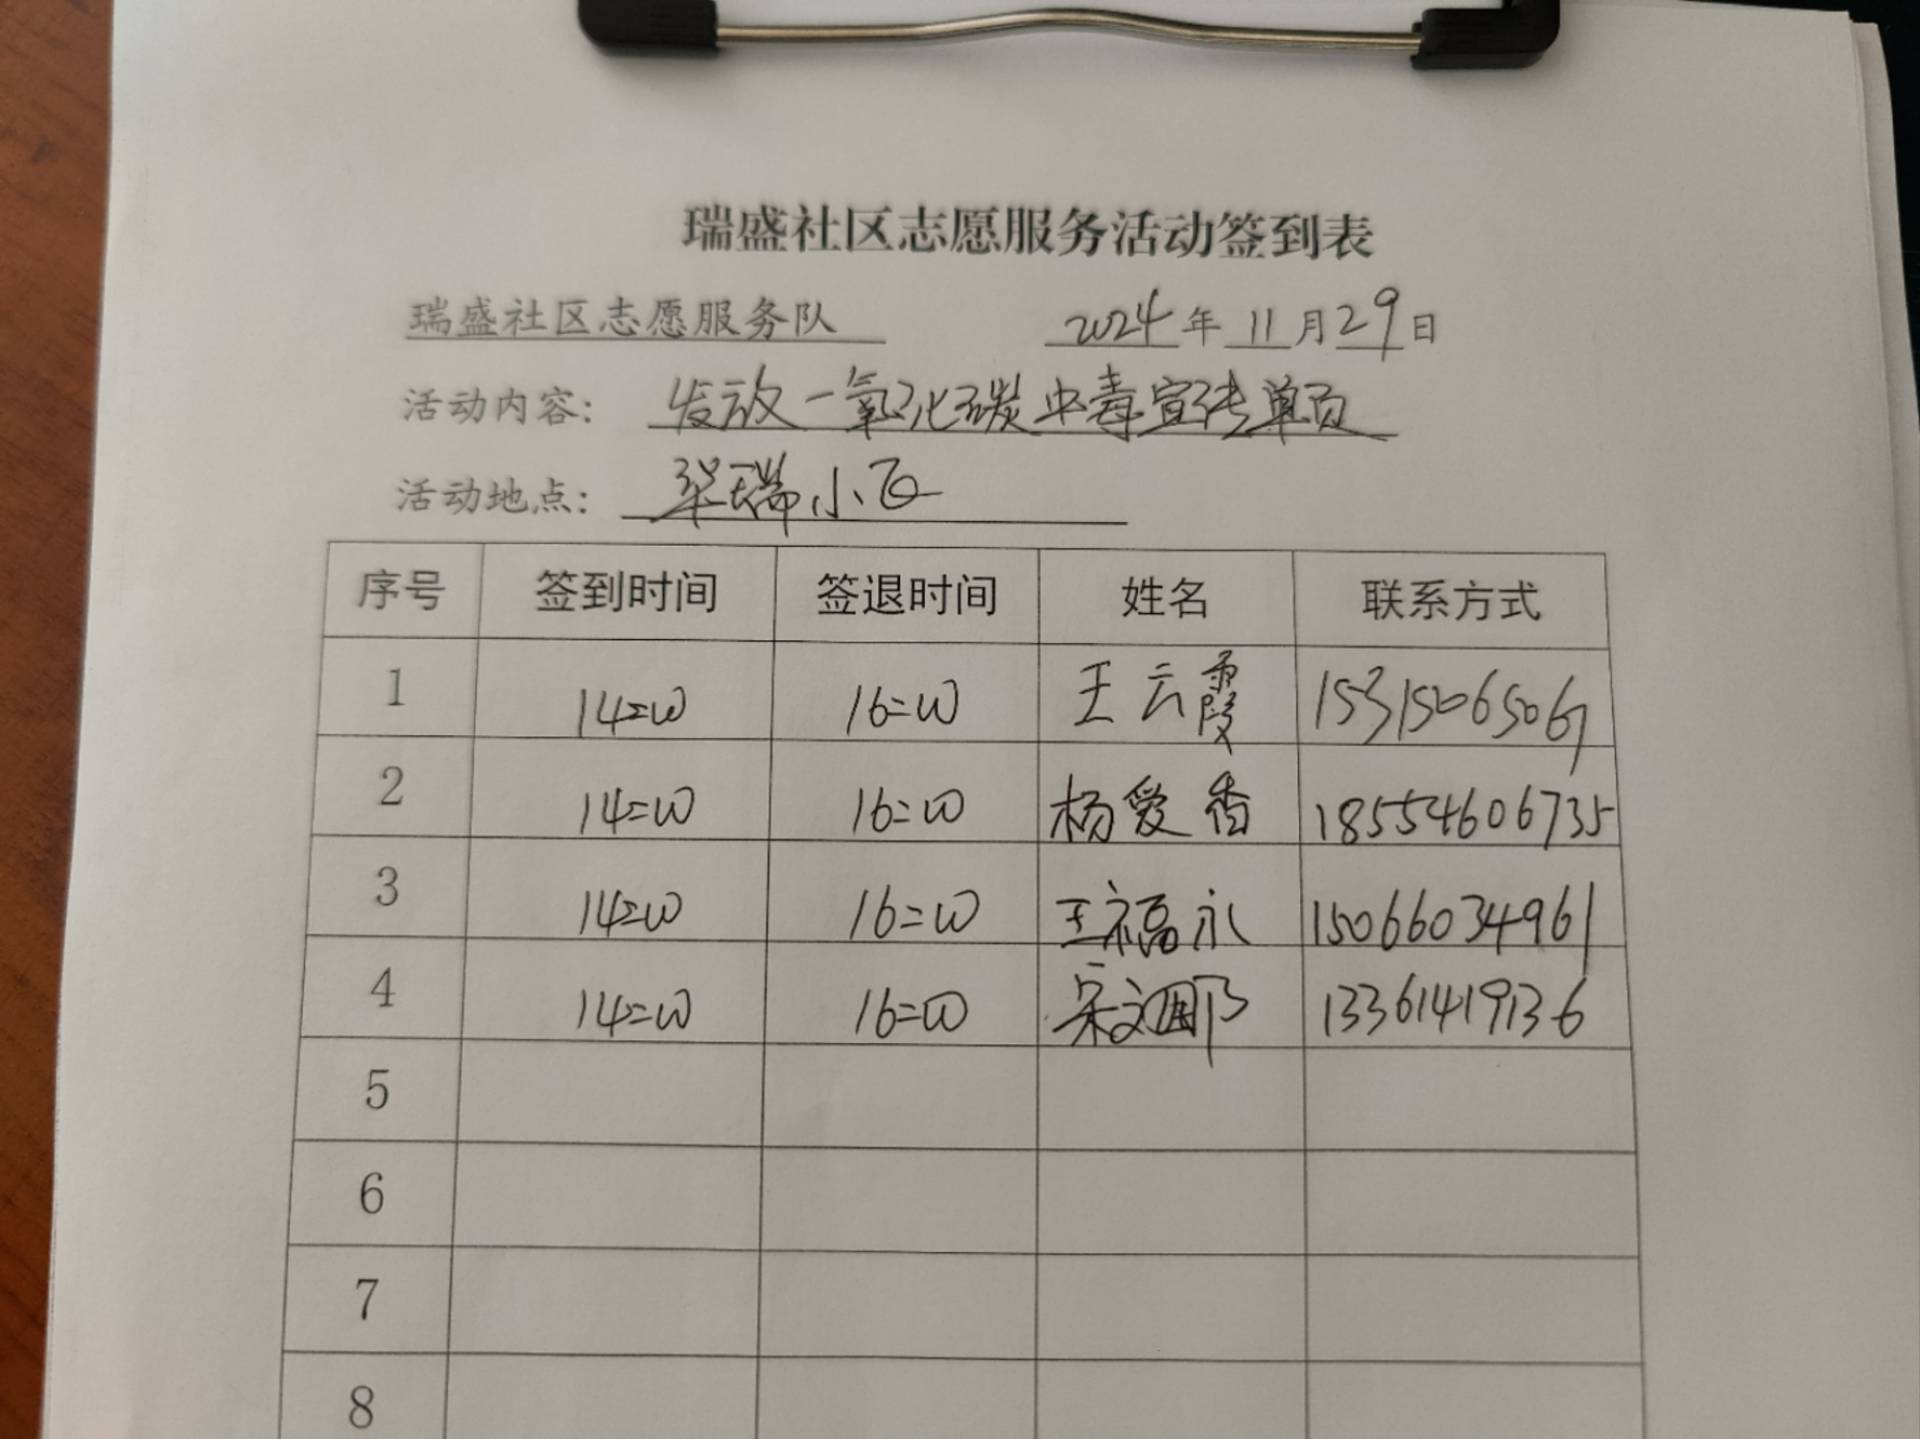 瑞盛社区志愿服务活动签到表
瑞盛社区志愿服务队 2024年11月29日
活动内容：发放一氧化碳中毒宣传单页
活动地点：梁瑞小区
序号 签到时间 签退时间 姓名 联系方式
1 14:00 16:00 王云霞 15315065067
2 14:00 16:00 杨爱香 18554606735
3 14:00 16:00 王福永 15066034961
4 14:00 16:00 宋文 13361419136
5
6
7
8